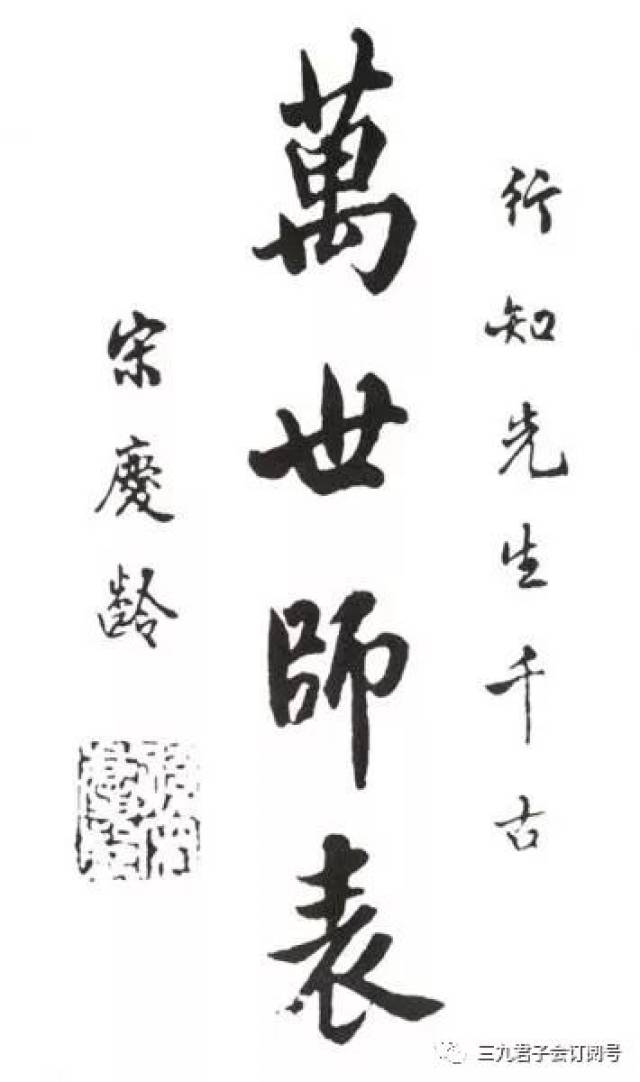 行知先生千古
萬世師表
宋慶齡
三九君子会订阅号